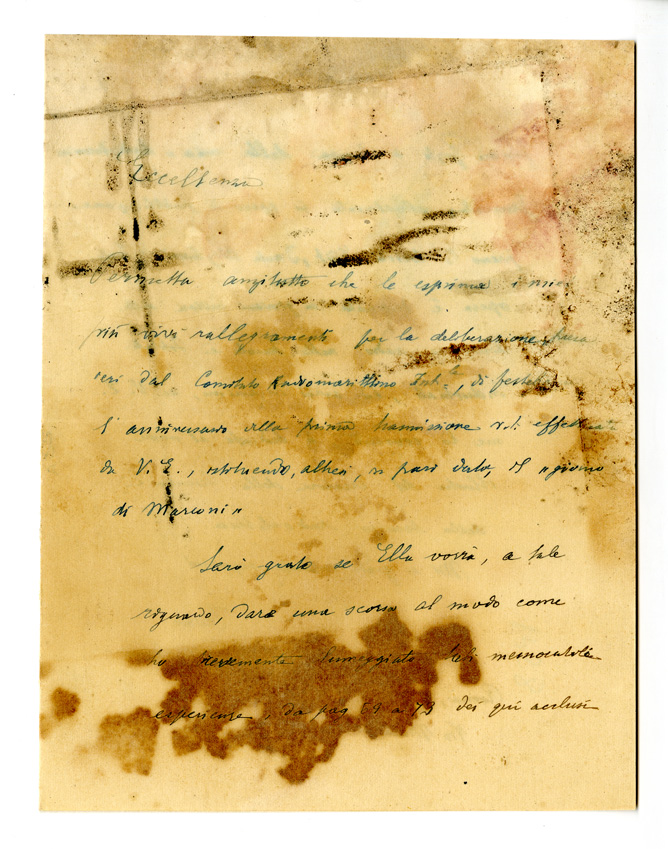 Eccellenza
Permetta anzitutto che le esprima i miei
più vivi rallegramenti per la deliberazione presa
ieri dal Comitato Radiomarittimo Int.le, di festeg
l'anniversario della prima trasmissione r.t. effettuat
da V. E., istituendo, altresì, in pari data, il "giorno
di Marconi"
Sarò grato se Ella vorrà, a tale
riguardo, dare una scorsa al modo come
ho brevemente lumeggiato tali memorabili
esperienze, da pag 59 a 73 dei qui acclusi